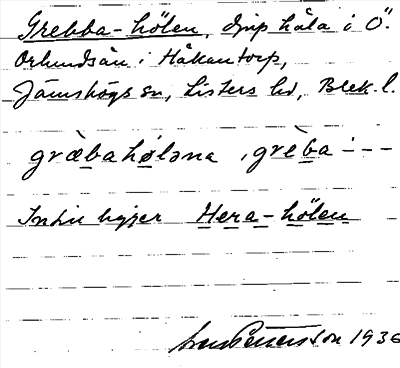 Grebba-hölen, djup håla i Ö.
Orlundsån i Håkantorp,
Jämshögs sn, Listers hd, Blek. l.
græ̀bahølǝna, grèba - - - -
Intill ligger Hera-hölen
Pettersson 1936